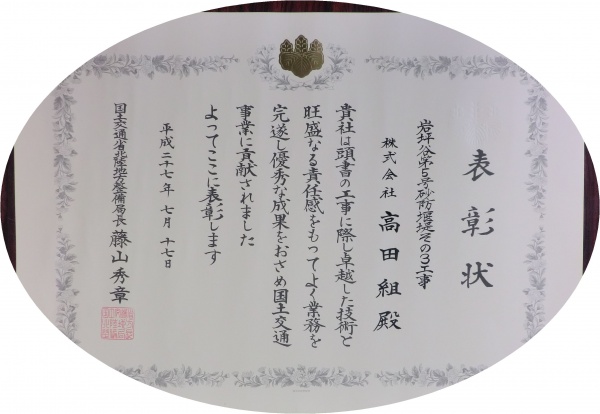 表彰状
岩坪谷第5号砂防堰堤その3工事
株式会社 高田組 殿
貴社は頭書の工事に際し卓越した技術と
旺盛なる責任感をもってよく業務を
完遂し優秀な成果をおさめ国土交通
事業に貢献されました
よってここに表彰します
平成二十七年 七月 十七日
国土交通省北陸地方整備局長 藤山秀章